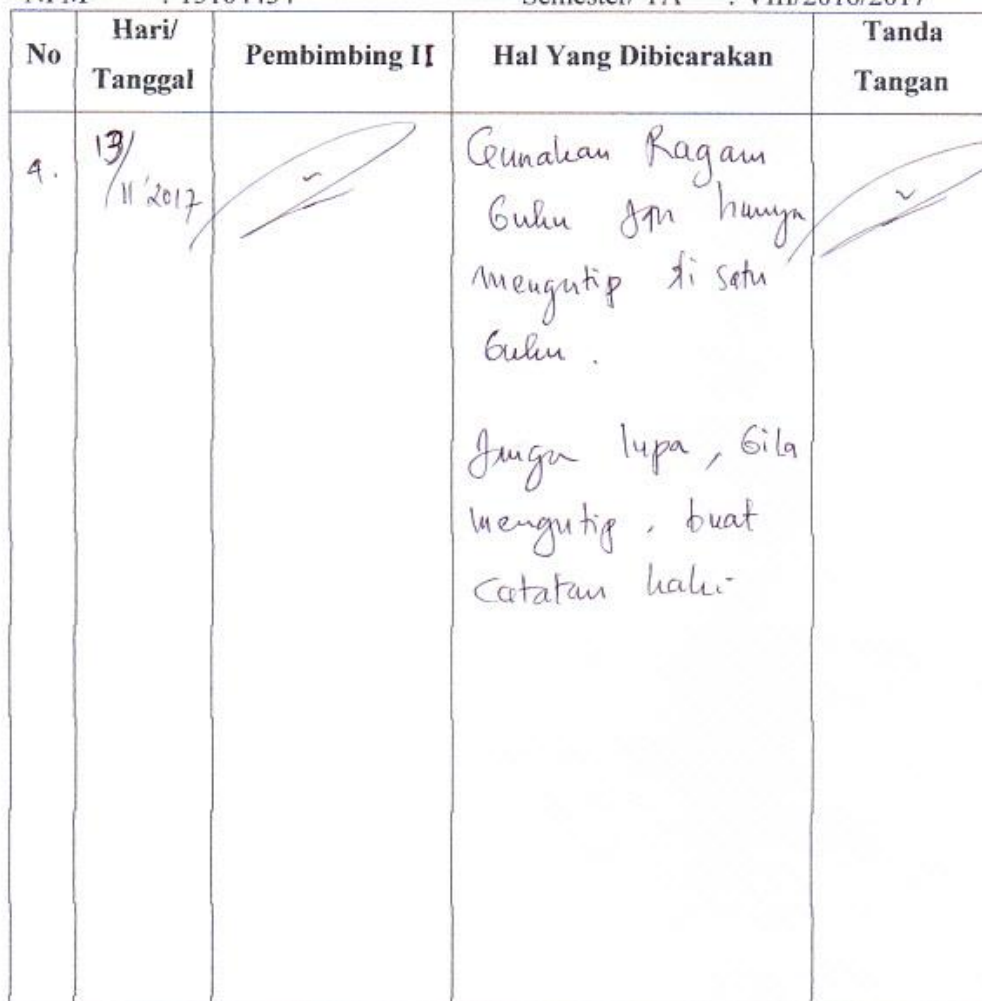 No Hari/ Tanggal Pembimbing II Hal Yang Dibicarakan Tanda Tangan
4. 13/11'2017
Gunakan Ragam
buku jgn hanya
mengutip di satu
buku.
Jangan lupa, bila
mengutip, buat
catatan kaki